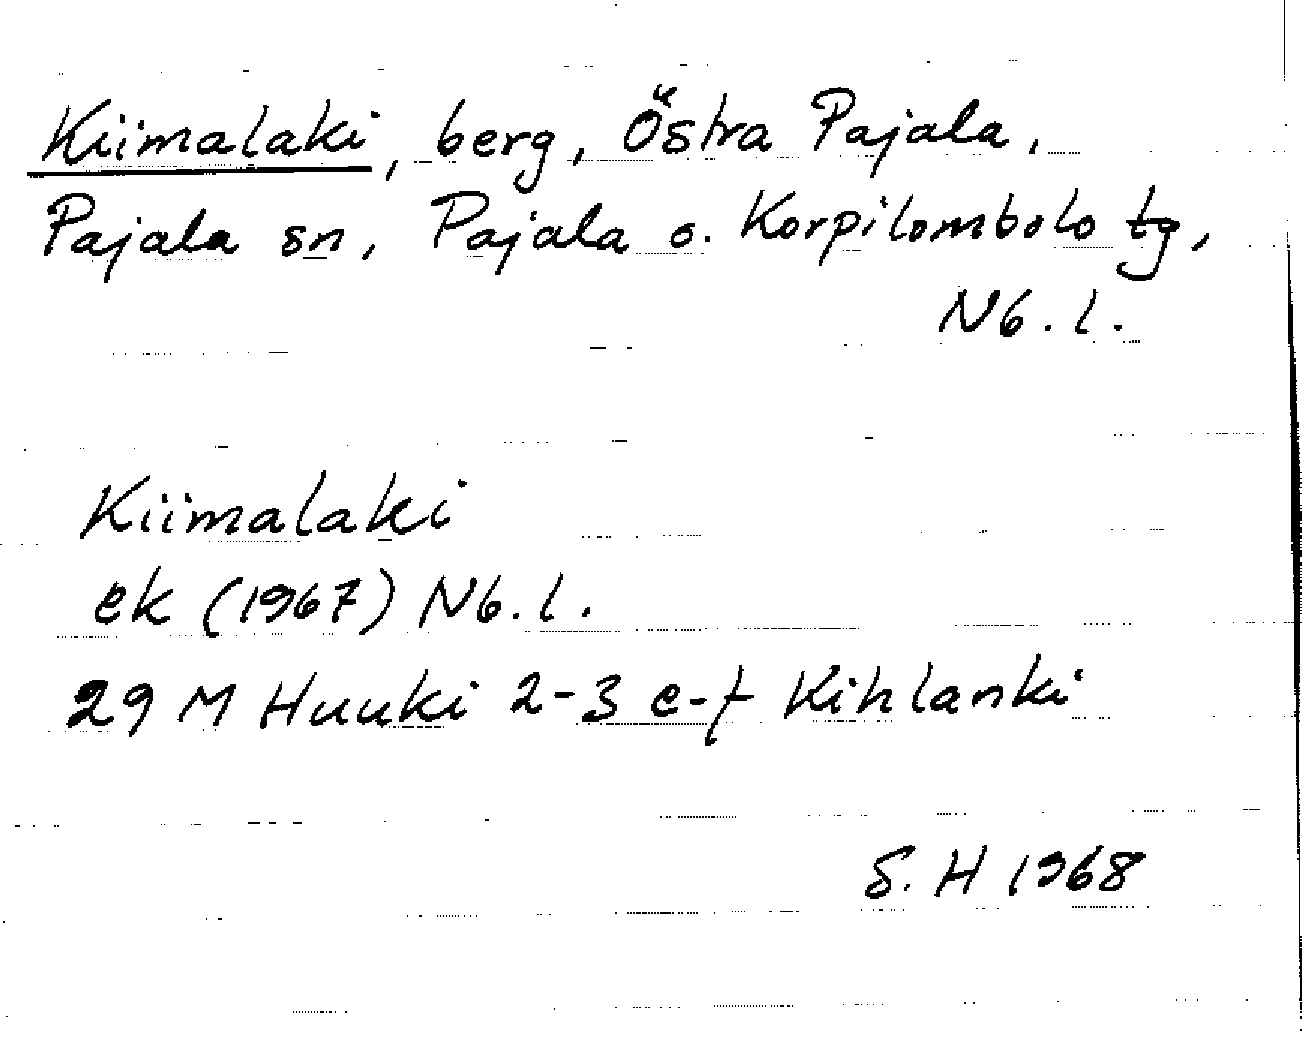 Kiimalaki, berg, Östra Pajala,
Pajala sn, Pajala o. Korpilombolo tg,
Nb. l.
Kiimalaki
ek (1967) Nb. l.
29 M Huuki 2-3 e-f Kihlanki
S. H 1968